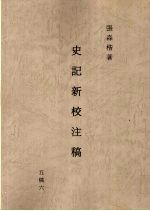 張森楷著
史記新校注稿
五稿六